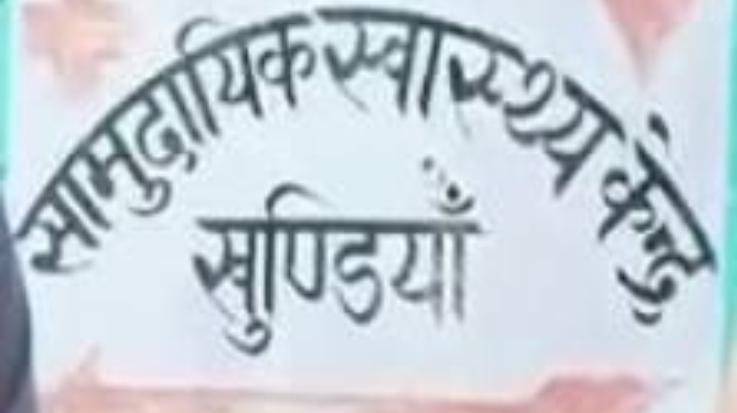 सामुदायिक स्वास्थ्य केन्द्र
खुण्डियाँ